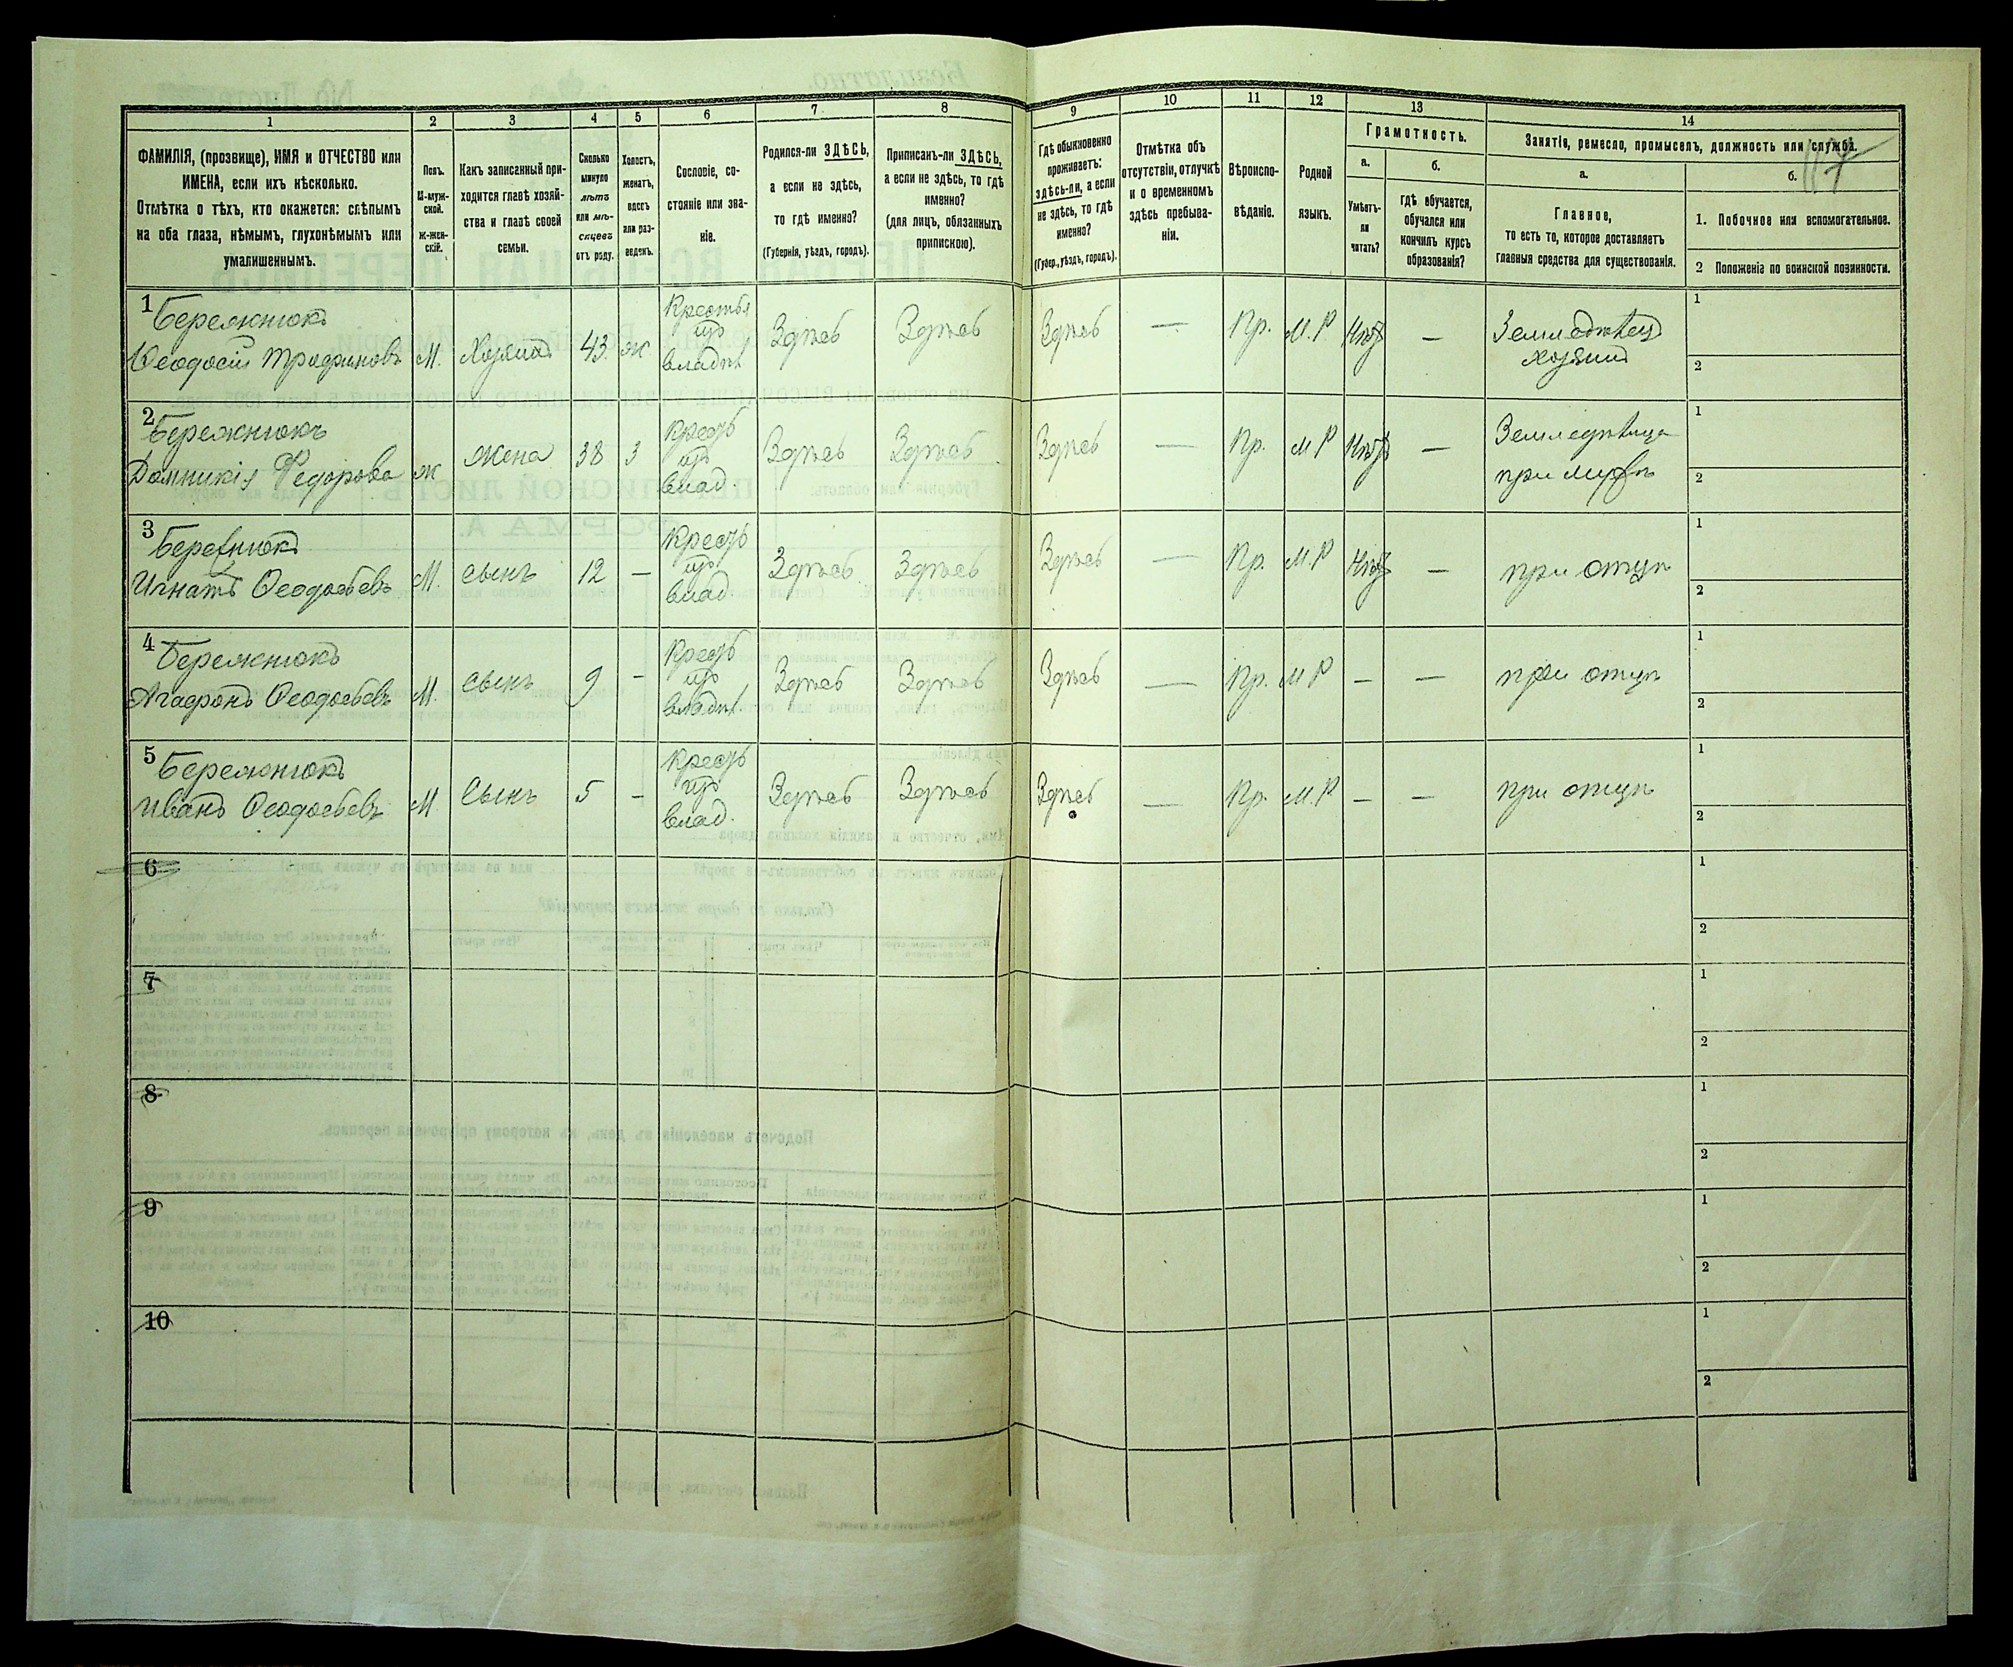 1 2 3 4 5 6 7 8 9 10 11 12 13 14
ФАМИЛІЯ, (прозвище), ИМЯ и ОТЧЕСТВО или
ИМЕНА, если ихъ нѣсколько.
Отмѣтка о тѣхъ, кто окажется: слѣпымъ
на оба глаза, нѣмымъ, глухонѣмымъ или
умалишеннымъ.
Полъ.
М-муж-
ской.
Ж-жен-
скій.
Какъ записанный при-
ходится главѣ хозяй-
ства и главѣ своей
семьи.
Сколько
минуло
лѣтъ
или мѣ-
сяцевъ
отъ роду.
Холостъ,
женатъ,
вдовъ
или раз-
веденъ.
Сословіе, со-
стояніе или зва-
ніе.
Родился-ли ЗДѢСЬ,
а если не здѣсь,
то гдѣ именно?
(Губернія, уѣздъ, городъ).
Приписанъ-ли ЗДѢСЬ,
а если не здѣсь, то гдѣ
именно?
(для лицъ, обязанныхъ
припискою).
Гдѣ обыкновенно
проживаетъ:
здѣсь-ли, а если
не здѣсь, то гдѣ
именно?
(Губер., уѣздъ, городъ).
Отмѣтка объ
отсутствіи, отлучкѣ
и о временномъ
здѣсь пребыва-
ніи.
Вѣроиспо-
вѣданіе.
Родной
языкъ.
Грамотность.
а.
Умѣетъ-
ли
читать?
б.
гдѣ обучается,
обучался или
кончилъ курсъ
образованія?
Занятіе, ремесло, промыселъ, должность или служба.
117
а.
Главное,
то есть то, которое доставляетъ
главныя средства для существованія.
б.
1. Побочное или вспомогательное.
2 Положеніе по воинской повинности.
1 Бережнюкъ
Ѳеодосій Трофимовъ М. Хозяинъ 43 ж Крестья изъ владѣл Здѣсь Здѣсь Здѣсь — Пр. М.Р Нѣтъ — Земледѣлецъ
хозяинъ
1
2
2 Бережнюкъ
Домникія Федорова ж жена 38 з Крест изъ влад. Здѣсь Здѣсь Здѣсь — Пр. М Р Нѣтъ — Земледѣлица
при мужѣ
1
2
3 Бережнюкъ
Игнатъ Ѳеодосьевъ М. сынъ 12 — Крест изъ влад Здѣсь Здѣсь Здѣсь — Пр. М.Р Нѣтъ — при отцѣ
1
2
4 Бережнюкъ
Агафонъ Ѳеодосьевъ М. сынъ 9 — Крест изъ владѣл. Здѣсь Здѣсь Здѣсь — Пр. М Р — — при отцѣ
1
2
5 Бережнюкъ
Иванъ Ѳеодосьевъ М. Сынъ 5 — Крест изъ влад. Здѣсь Здѣсь Здѣсь — Пр. М.Р. — — при отцѣ
1
2
6
1
2
7
1
2
8
1
2
9
1
2
10
1
2